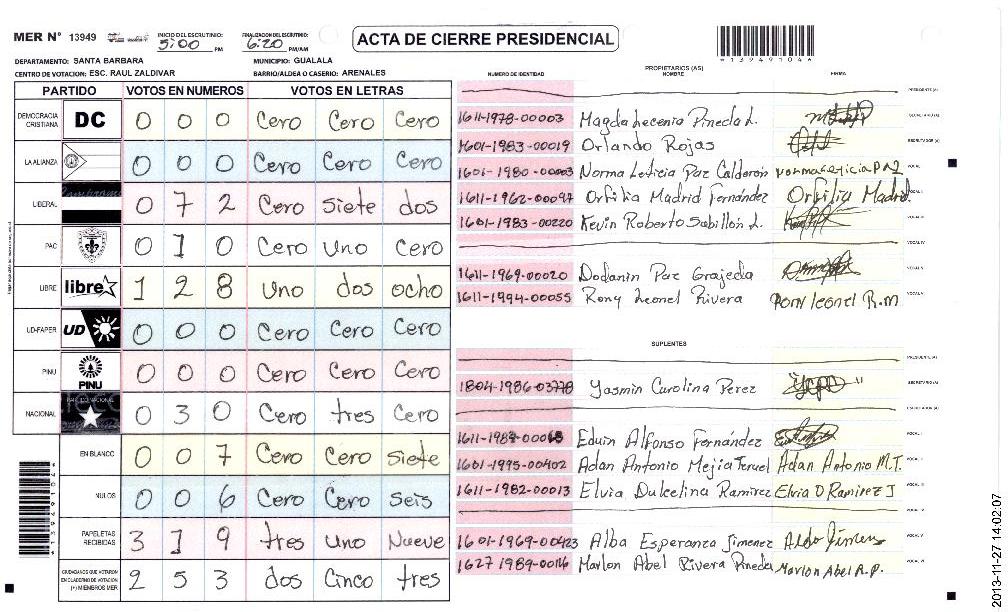 MER N° 13949 INICIO DEL ESCRUTINIO: 5:00 PM FINALIZACION DEL ESCRUTINIO: 6:20 PM/AM ACTA DE CIERRE PRESIDENCIAL
*13949104*
DEPARTAMENTO: SANTA BARBARA MUNICIPIO: GUALALA
CENTRO DE VOTACION: ESC. RAUL ZALDIVAR BARRIO/ALDEA O CASERIO: ARENALES
PARTIDO VOTOS EN NUMEROS VOTOS EN LETRAS
DEMOCRACIA CRISTIANA DC 0 0 0 Cero Cero Cero
LA ALIANZA 0 0 0 Cero Cero Cero
LIBERAL 0 7 2 Cero Siete dos
PAC 0 1 0 Cero Uno Cero
LIBRE libre 1 2 8 Uno dos ocho
UD-FAPER UD 0 0 0 Cero Cero Cero
PINU PINU 0 0 0 Cero Cero Cero
NACIONAL PARTIDO NACIONAL 0 3 0 Cero tres Cero
EN BLANCO 0 0 7 Cero Cero Siete
NULOS 0 0 6 Cero Cero Seis
PAPELETAS RECIBIDAS 3 1 9 tres Uno Nueve
CIUDADANOS QUE VOTARON EN CUADERNO DE VOTACION (+) MIEMBROS MER 2 5 3 dos Cinco tres
*13949104*
PROPIETARIOS (AS)
NUMERO DE IDENTIDAD NOMBRE FIRMA
PRESIDENTE (A)
1611-1978-00003 Magda Lecenia Pineda L. SECRETARIO (A)
1601-1983-00019 Orlando Rojas ESCRUTADOR (A)
1601-1980-00003 Norma Leticia Paz Calderón VOCAL I
1611-1962-00097 Orfilia Madrid Fernández Orfilia Madrid
1601-1983-00220 Kevin Roberto Sabillón L. VOCAL III
VOCAL IV
1611-1969-00020 Dodanin Paz Grajeda VOCAL V
1611-1994-00055 Rony Leonel Rivera Rony leonel R.M
SUPLENTES
PRESIDENTE (A)
1804-1986-03778 Yasmin Carolina Perez SECRETARIO (A)
ESCRUTADOR (A)
Eduin Alfonso Fernández VOCAL I
1601-1995-00402 Adan Antonio Mejia Teruel Adan Antonio M.T.
1611-1982-00013 Elvia Dulcelina Ramirez Elvia D Ramirez J VOCAL III
VOCAL IV
1601-1969-00423 Alba Esperanza Jimenez VOCAL V
1627 1989-00116 Marlon Abel Rivera Pineda Marlon Abel R.P. VOCAL VI
2013-11-27 14:02:07